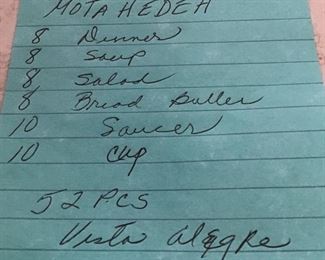 MOTAHEDEH
8 Dinner
8 Soup
8 Salad
8 Bread Butter
10 Saucer
10 Cup
52 PCS
Vista Alegre